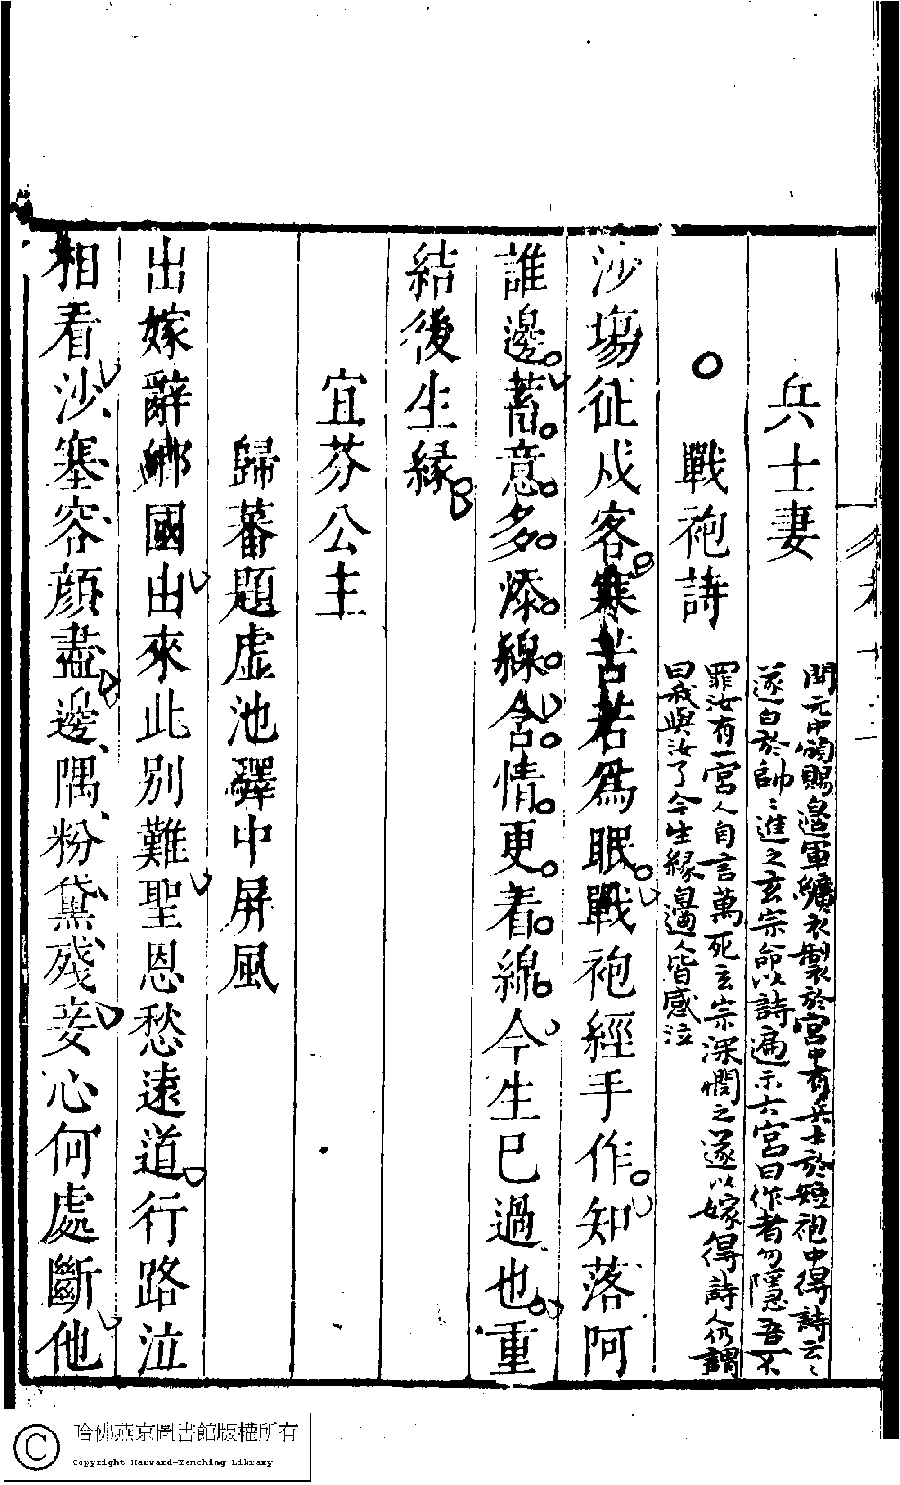 兵士妻
戰袍詩
開元中頒賜邊軍纊衣製於宮中有兵士於短袍中得詩云〻
遂白於帥〻進之玄宗命以詩遍示六宮曰作者勿隱吾不
罪汝有一宮人自言萬死玄宗深憫之遂以嫁得詩人仍謂
曰我與汝了今生緣邊人皆感泣
沙塲征戍客寒苦若爲眠戰袍經手作知落阿
誰邊蓄意多添線含情更着綿今生巳過也重
結後生緣
宜芬公主
歸蕃題虛池驛中屏風
出嫁辭鄉國由來此別難聖恩愁遠道行路泣
相看沙塞容顔盡邊隅粉黛殘妾心何處斷他
哈佛燕京圖書館版權所有
Copyright Harvard-Yenching Library